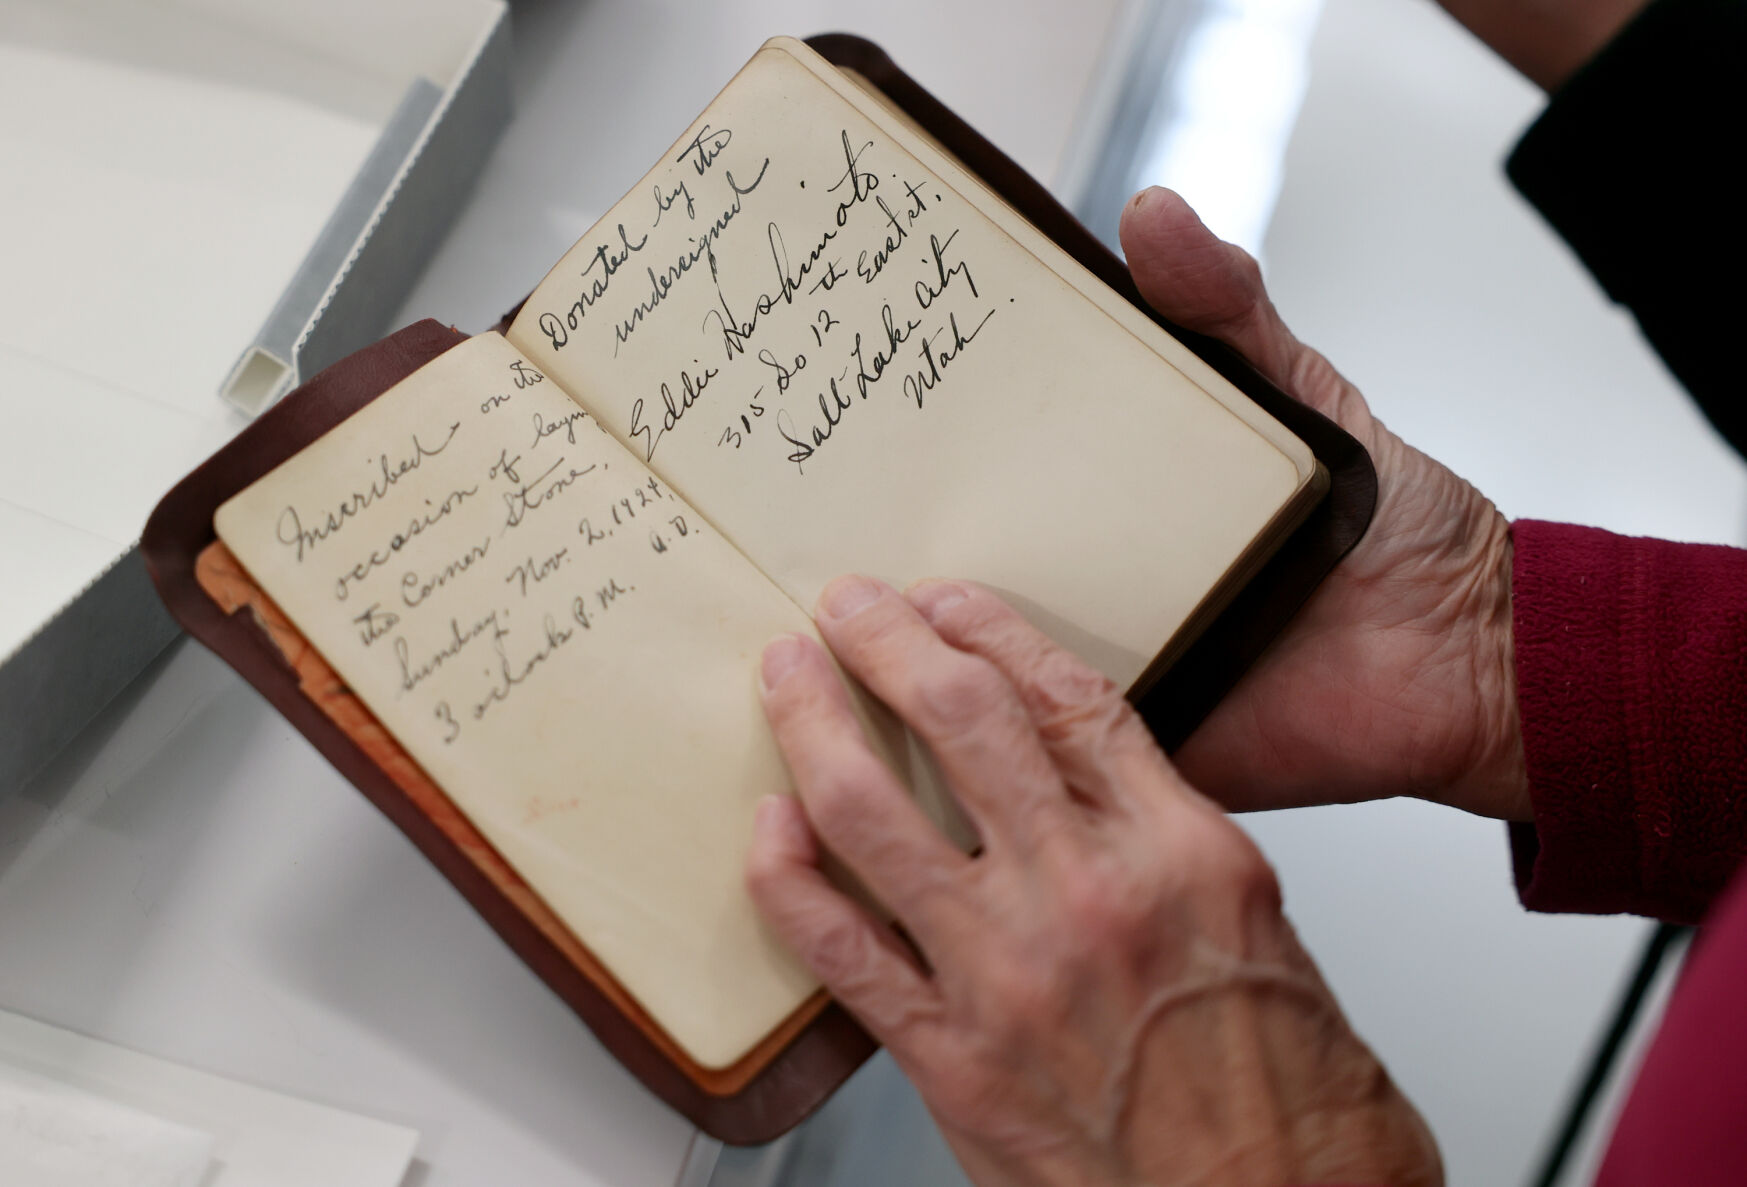 Inscribed on the
occasion of laying
the Corner Stone,
Sunday, Nov. 2, 1924,
3 o'clock P.M. A.D.
Donated by the
undersigned
Eddie Hashimoto.
315 So 12th East st.
Salt Lake City
Utah.